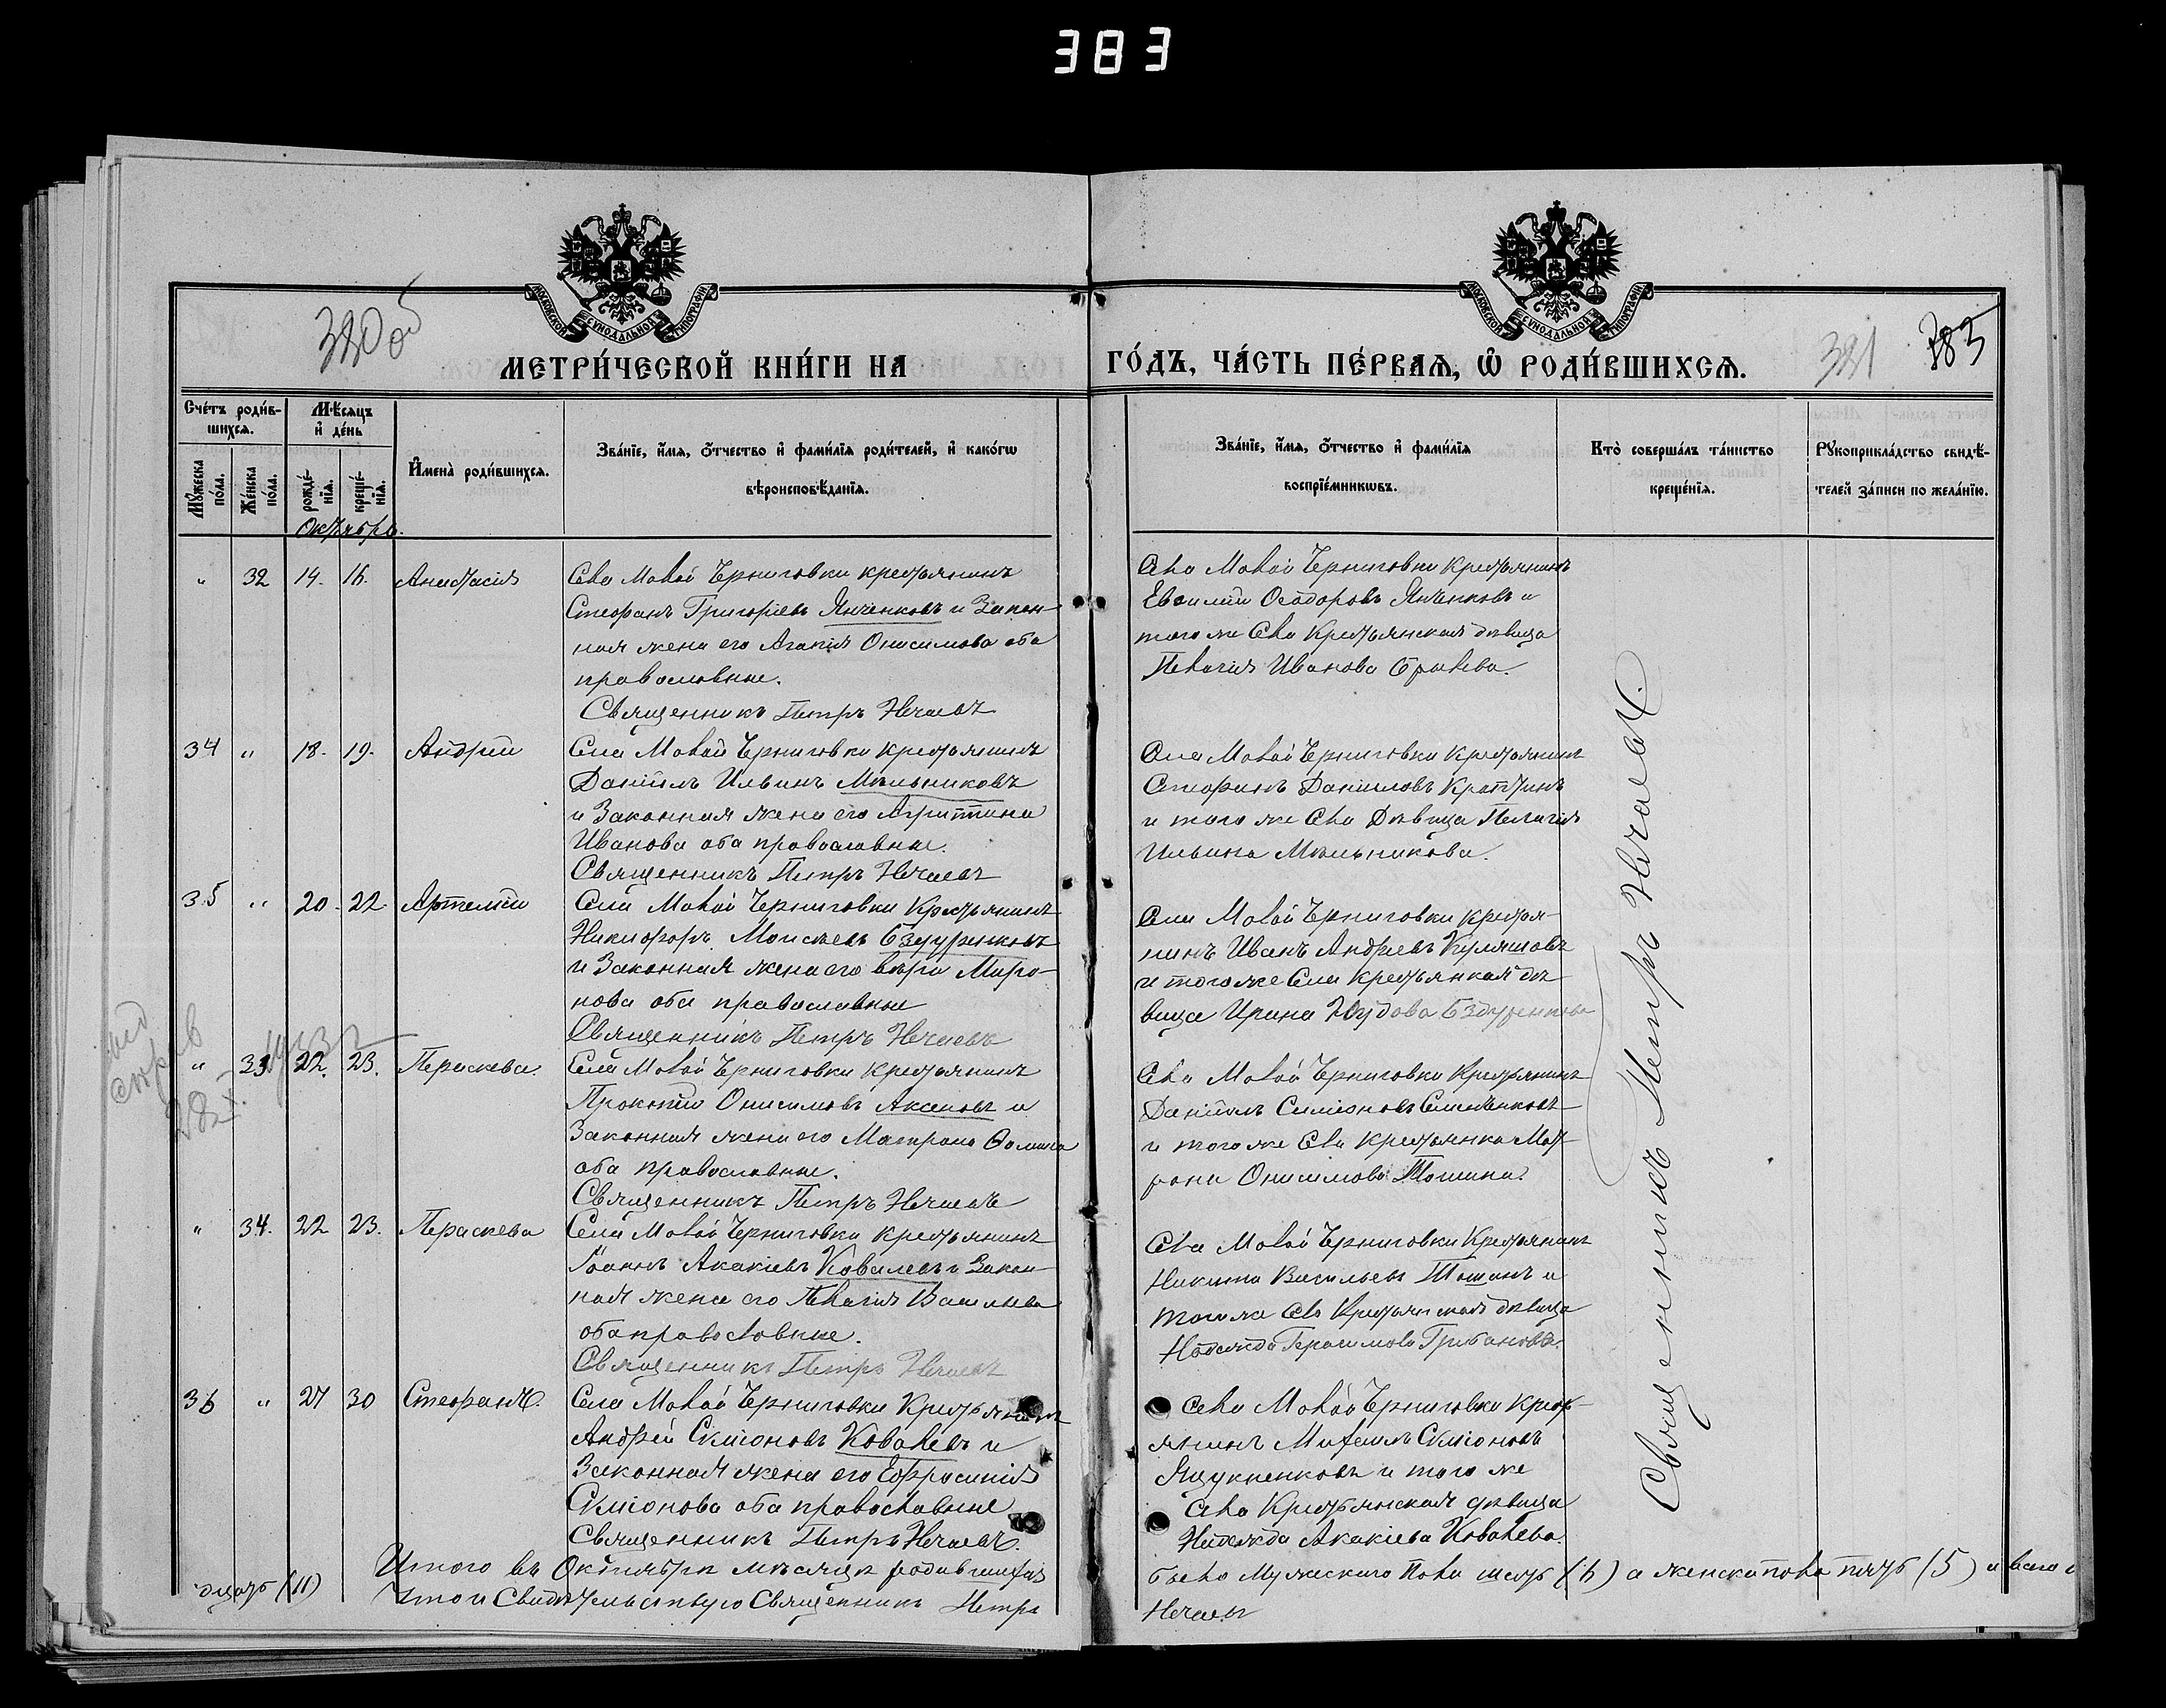 383
380 об
381
383
МОСКОВСКОЙ СУНОДАЛЬНОЙ ТИПОГРАФІИ
МОСКОВСКОЙ СУНОДАЛЬНОЙ ТИПОГРАФІИ
МЕТРИ́ЧЕСКОЙ КНИ́ГИ НА ГО́ДЪ, ЧА́СТЬ ПЕ́РВАѦ, Ѽ РОДИ́ВШИХСѦ.
Сче́тъ роди́в-
шихсѧ.
Мѣ́сѧцъ
и҆ де́нь
Мꙋ́жеска
по́ла.
Же́нска
по́ла.
рожде́-
нїѧ.
креще́-
нїѧ.
И҆мена̀ роди́вшихсѧ.
Зва́нїе, и҆́мѧ, ѻ҆́тчество и҆ фами́лїѧ роди́телей, и҆ како́гѡ
вѣроисповѣ́данїѧ.
Зва́нїе, и҆́мѧ, ѻ҆́тчество и҆ фами́лїѧ
воспрїе́мникѡвъ.
Кто̀ соверша́лъ та́инство
креще́нїѧ.
Рꙋкоприкла́дство свидѣ́-
телей за́писи по жела́нїю.
Октябрь.
" 32 14. 16. Анастасія
Села Малой Черниговки крестьянинъ
Стефанъ Григорьевъ Янченковъ и Закон-
ная жена его Агапія Онисимова оба
православные.
Священникъ Петръ Нечаевъ
Села Малой Черниговки крестьянинъ
Евсилій Ѳеодоровъ Янченковъ и
того же Села Крестьянская дѣвица
Пелагія Иванова
34 " 18. 19. Андрей
Села Малой Черниговки крестьянинъ
Даніилъ Ильинъ Мѣльниковъ
и Законная жена его Агриппина
Иванова оба православные.
Священникъ Петръ Нечаевъ
Села Малой Черниговки крестьянинъ
Стефанъ Данииловъ
и того же Села Дѣвица Пелагія
Ильина Мѣльникова.
35 " 20. 22. Артемій
Села Малой Черниговки Крестьянинъ
Никифоръ Моисѣевъ
и Законная жена его Вѣра Миро-
нова оба православные
Священникъ Петръ Нечаевъ
Села Малой Черниговки крестья-
нинъ Иванъ Андреевъ Куляшовъ
и того же Села Крестьянкая дѣ-
вица Ирина
" 33 22. 23. Параскева.
Села Малой Черниговки крестьянинъ
Прокопій Онисимовъ Аксеновъ и
Законная жена его Матрона Ѳомина
оба православные.
Священникъ Петръ Нечаевъ
Села Малой Черниговки Крестьянинъ
Даніилъ Симіоновъ
и того же Села крестьянка Мат-
рона Онисимова Тошина.
" 34. 22 23. Параскева
Села Малой Черниговки крестьянинъ
Іоаннъ Акакіевъ Ковалевъ и Закон-
ная жена его Пелагія Васильева
оба православные.
Священникъ Петръ Нечаевъ
Села Малой Черниговки Крестьянинъ
Никита Васильевъ Тошинъ и
того же Села Крестьянская дѣвица
Надежда Герасимова Грибанова.
36 " 27 30 Стефанъ.
Села Малой Черниговки Крестьянинъ
Андрей Симіоновъ Ковалевъ и
Законная жена его Ефросинія
Симіонова оба православные
Священникъ Петръ Нечаевъ.
Села Малой Черниговки Крест-
янинъ Михаилъ Симіоновъ
и того же
Села Крестьянская дѣвица
Надежда Акакіева Ковалева.
Священникъ Петръ Нечаевъ.
Итого въ Октябрѣ мѣсяцѣ родившихся было Мужескаго Пола шесть (6) а женска пола пять (5) а всего о
динадцать (11) Что и Свидѣтельствую Священникъ Петръ Нечаевъ